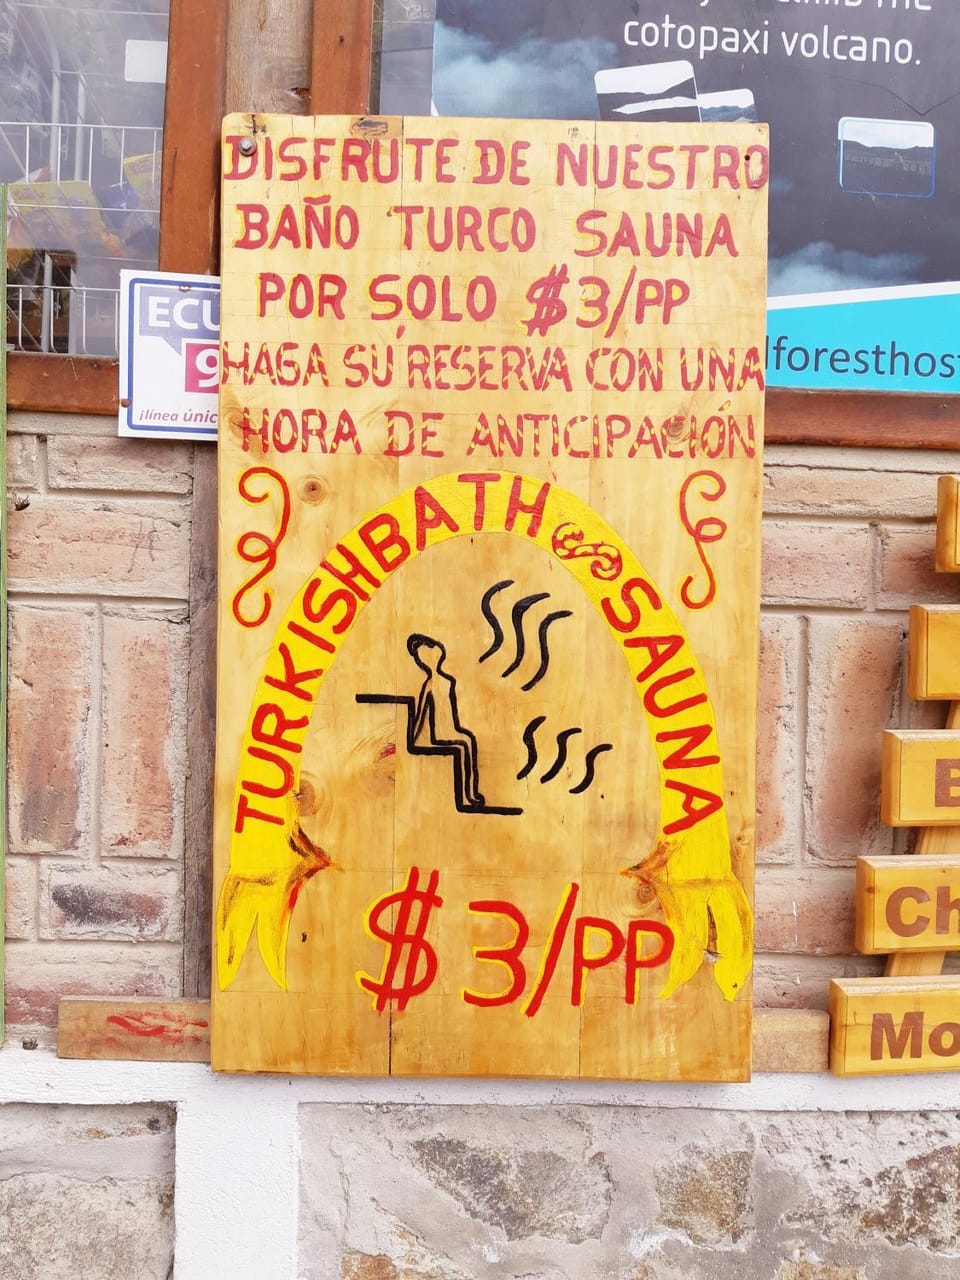 cotopaxi volcano.
DISFRUTE DE NUESTRO
BAÑO TURCO SAUNA
POR SOLO $3/PP
HAGA SU RESERVA CON UNA
HORA DE ANTICIPACIÓN
TURKISH BATH SAUNA
$3/PP
ECU
9
¡línea únic
lforesthost
B
Ch
Mo